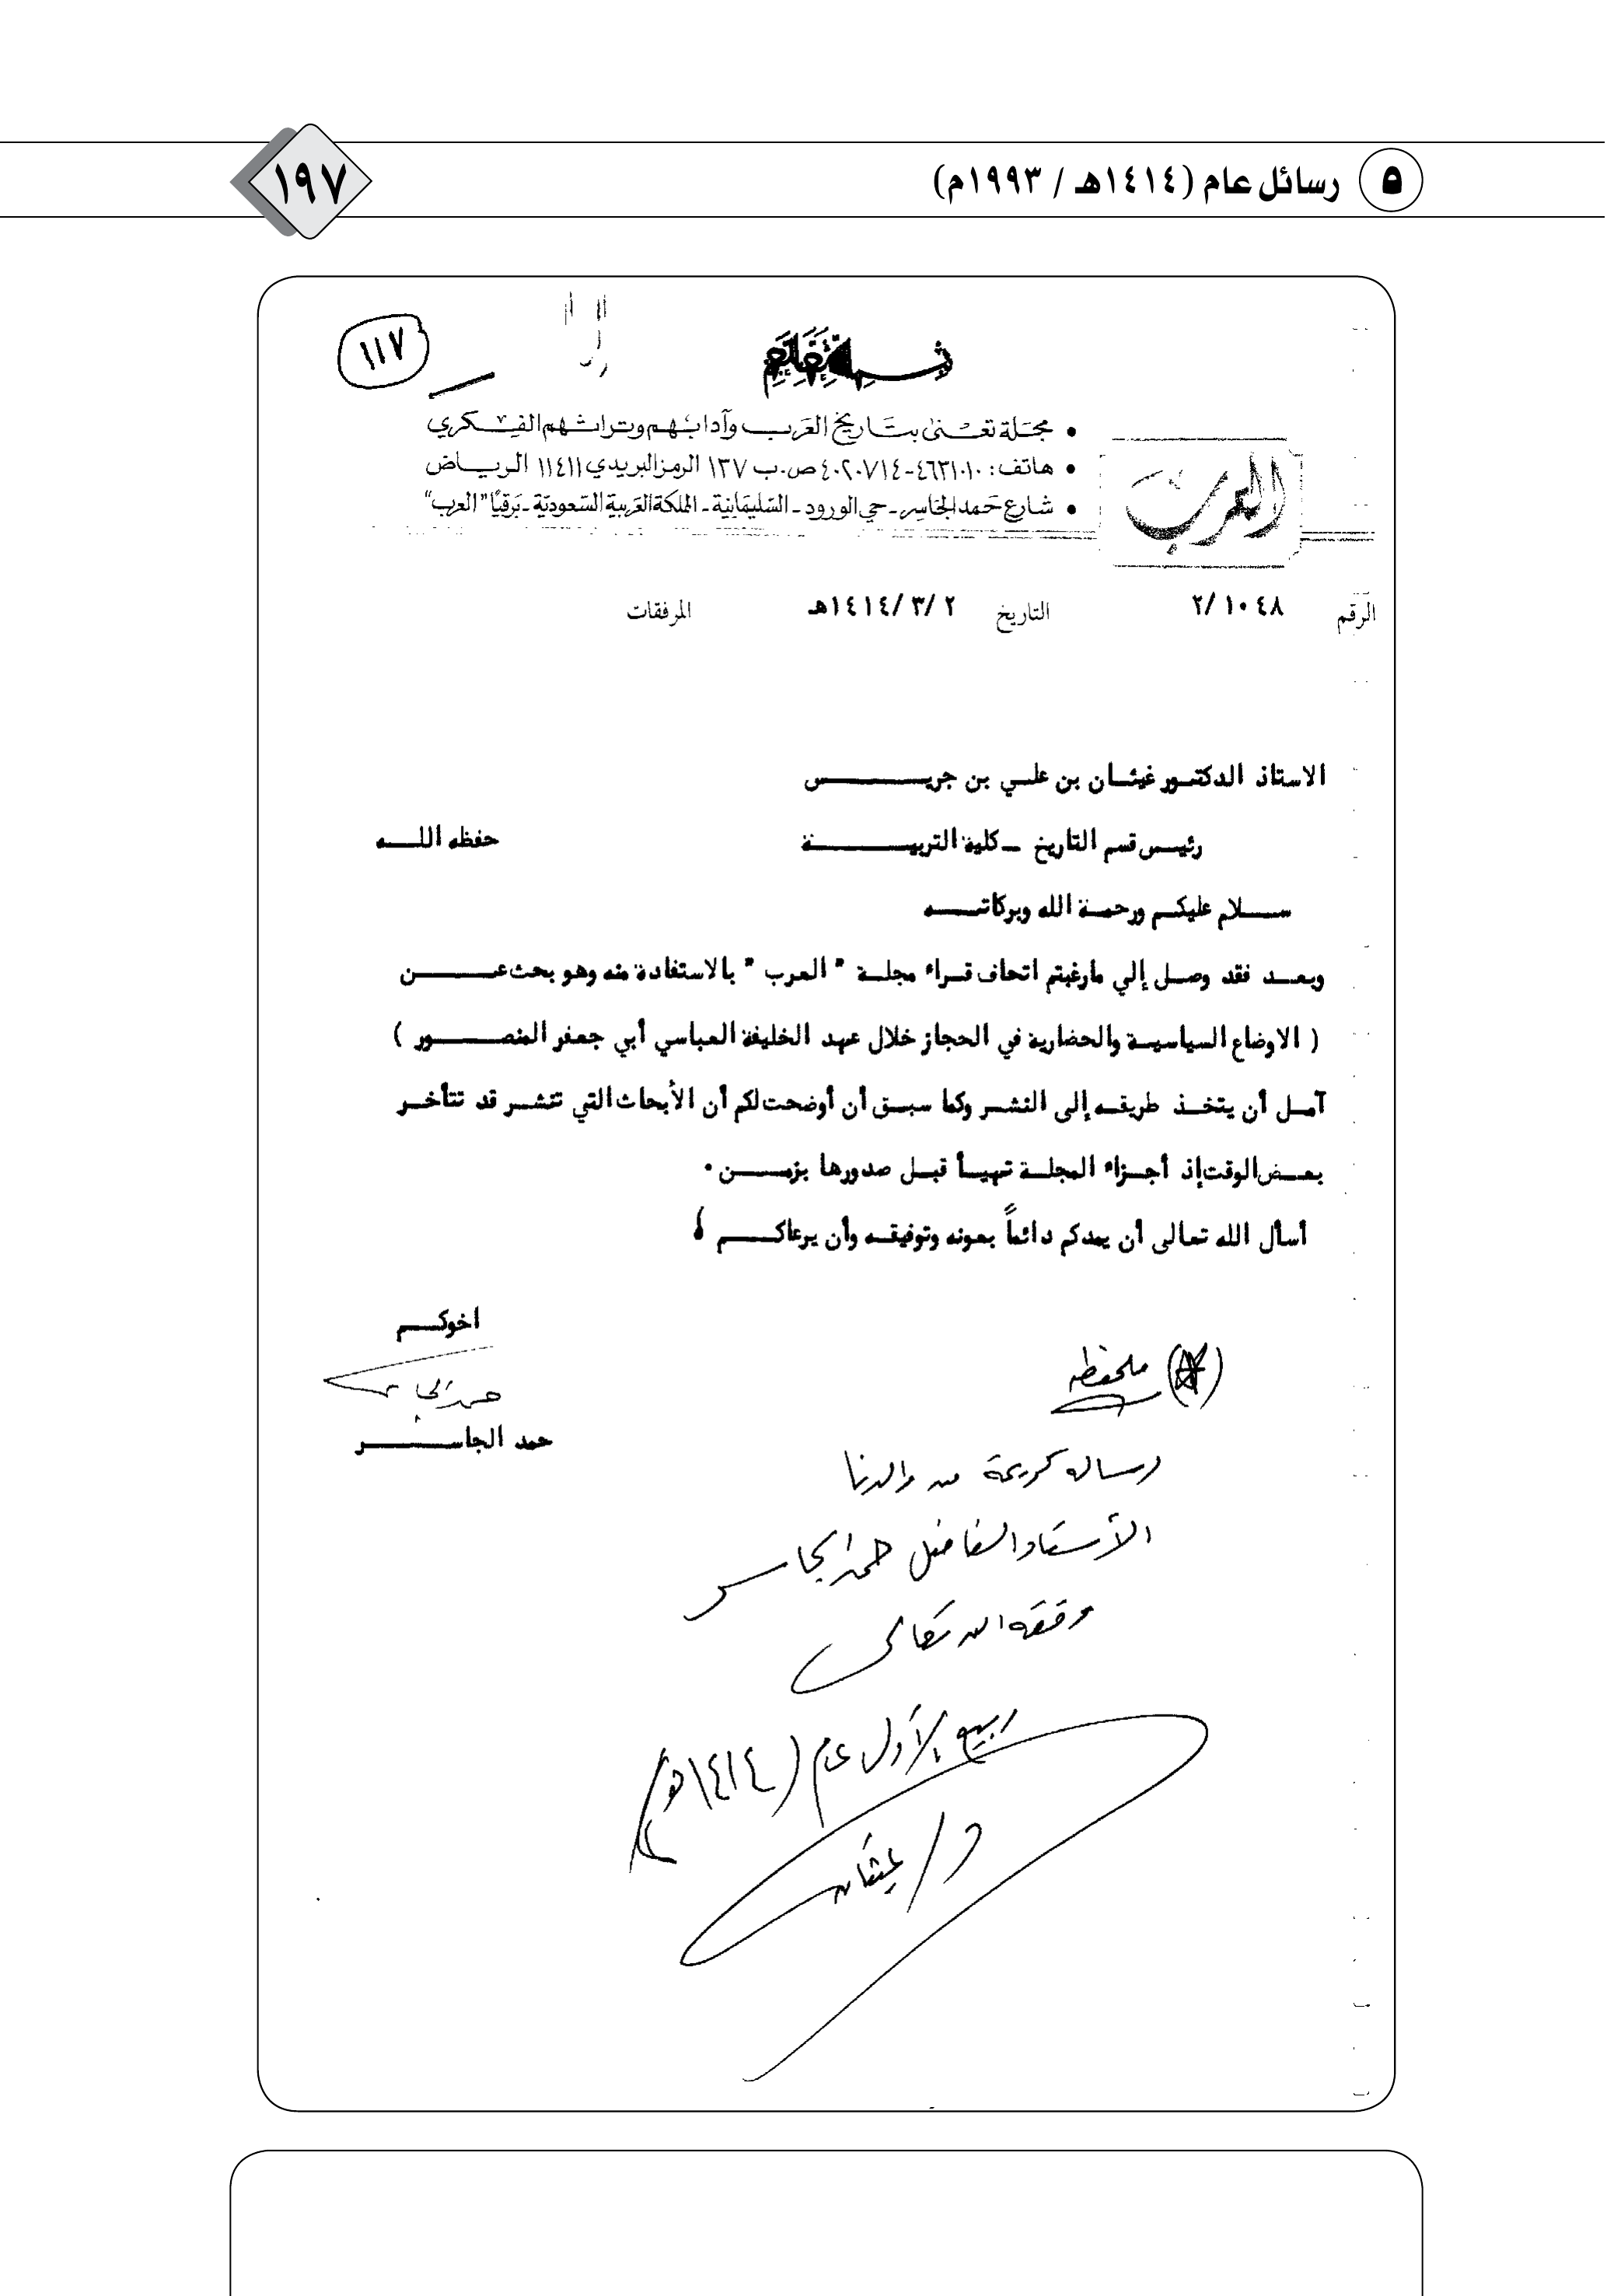 ٥ رسائل عام (١٤١٤هـ / ١٩٩٣م)
١٩٧
١١٧
• مجلة تعنى بتاريخ العرب وآدابهم وتراثهم الفكري
• هاتف: ٤٦٣١٠١٠-٤٠٢٠٧١٤ ص.ب ١٣٧ الرمز البريدي ١١٤١١ الرياض
• شارع حمد الجاسر - حي الورود - السليمانية - المملكة العربية السعودية - برقيًا "العرب"
العرب
الرقم ٢/١٠٤٨ التاريخ ٢ /٣ /١٤١٤هـ المرفقات
الاستاذ الدكتور غيثان بن علي بن جريس
رئيس قسم التاريخ - كلية التربية حفظه الله
سلام عليكم ورحمة الله وبركاته
وبعد فقد وصل إلي مارغبتم اتحاف قراء مجلة " العرب " بالاستفادة منه وهو بحث عن
( الاوضاع السياسية والحضارية في الحجاز خلال عهد الخليفة العباسي أبي جعفر المنصور )
آمل أن يتخذ طريقه إلى النشر وكما سبق أن أوضحت لكم أن الأبحاث التي تنشر قد تتأخر
بعض الوقت إذ أجزاء المجلة تهيأ قبل صدورها بزمن .
أسأل الله تعالى أن يمدكم دائماً بعونه وتوفيقه وأن يرعاكم
اخوكم
حمد الجاسر
حمد الجاسر
ملحظه
رساله كريمة من والدنا
الأستاذ الفاضل حمد الجاسر
وفقه الله تعالى
ربيع الأول عام (١٤١٤هـ)
د/ غيثان